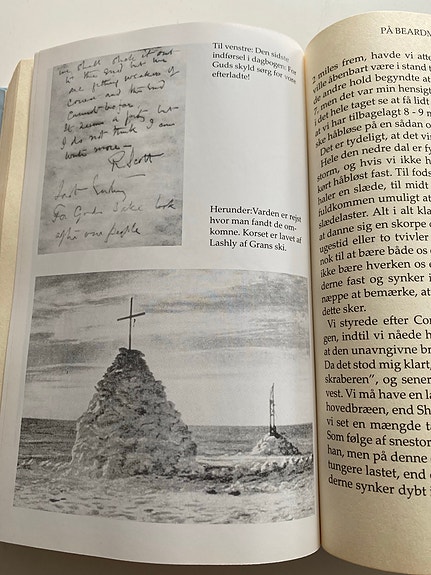 we shall stick it out
to the end but we
are getting weaker of
course and the end
cannot be far.
It seems a pity but
I do not think I can
write more —
R. Scott
Last Entry
For Gods Sake look
after our people
Til venstre: Den sidste
indførsel i dagbogen: For
Guds skyld sørg for vore
efterladte!
Herunder:Varden er rejst
hvor man fandt de om-
komne. Korset er lavet af
Lashly af Grans ski.
PÅ BEARDM
2 miles frem, havde vi atte
ville åbenbart være i stand t
de andre hold begyndte at
7, men det var min hensigt
i det hele taget se at få lidt
at vi har tilbagelagt 8 - 9 m
ske håbløse på en sådan o
Det er tydeligt, at det vis
Hele den nedre dal er fy
storm, og hvis vi ikke h
kørt håbløst fast. Til fods
haler en slæde, til midt
fuldkommen umuligt at
slædelaster. Alt i alt kla
at danne sig en skorpe
ugestid eller to tvivler
nok til at bære både os o
ikke bære hverken os e
derne fast og synker i
næppe at bemærke, at
dette sker.
Vi styrede efter Co
gen, indtil vi nåede h
at den unavngivne br
Da det stod mig klart,
skraberen”, og sener
vest. Vi må have en la
hovedbræen, end Sh
vi set en mængde ta
Som følge af snestor
han, men på denne
tungere lastet, end
derne synker dybt i